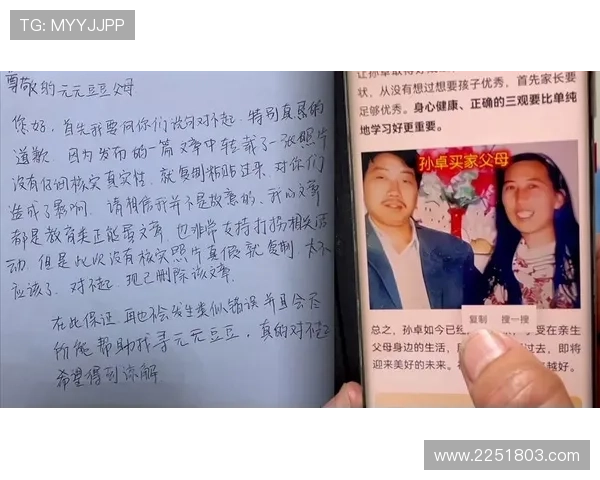 TG: MYYJJPP
尊敬的元元豆豆父母
您好，首先我要向你们说句对不起，特别真恳的
道歉，因为发布的一篇文章中转载了一张照片
没有仔细核实真实性，就复制粘贴过来，对你们
造成了影响，请相信我并不是故意的，我的文章
都是教育类正能量文章，也非常支持打拐相关活
动，但是此次没有核实照片真假就复制，太不
应该了，对不起，现已删除该文章，
在此保证，再也不会发生类似错误并且会尽
所能帮助找寻元元豆豆，真的对不起
希望得到谅解
让孙卓取得好成
状，从没有想过想要孩子优秀，首先家长要
足够优秀。身心健康、正确的三观要比单纯
地学习好更重要。
孙卓买家父母
复制 搜一搜
总之，孙卓如今已经 享受在亲生
父母身边的生活， 过去，即将
迎来美好的未来。 越好。
www.2251803.com